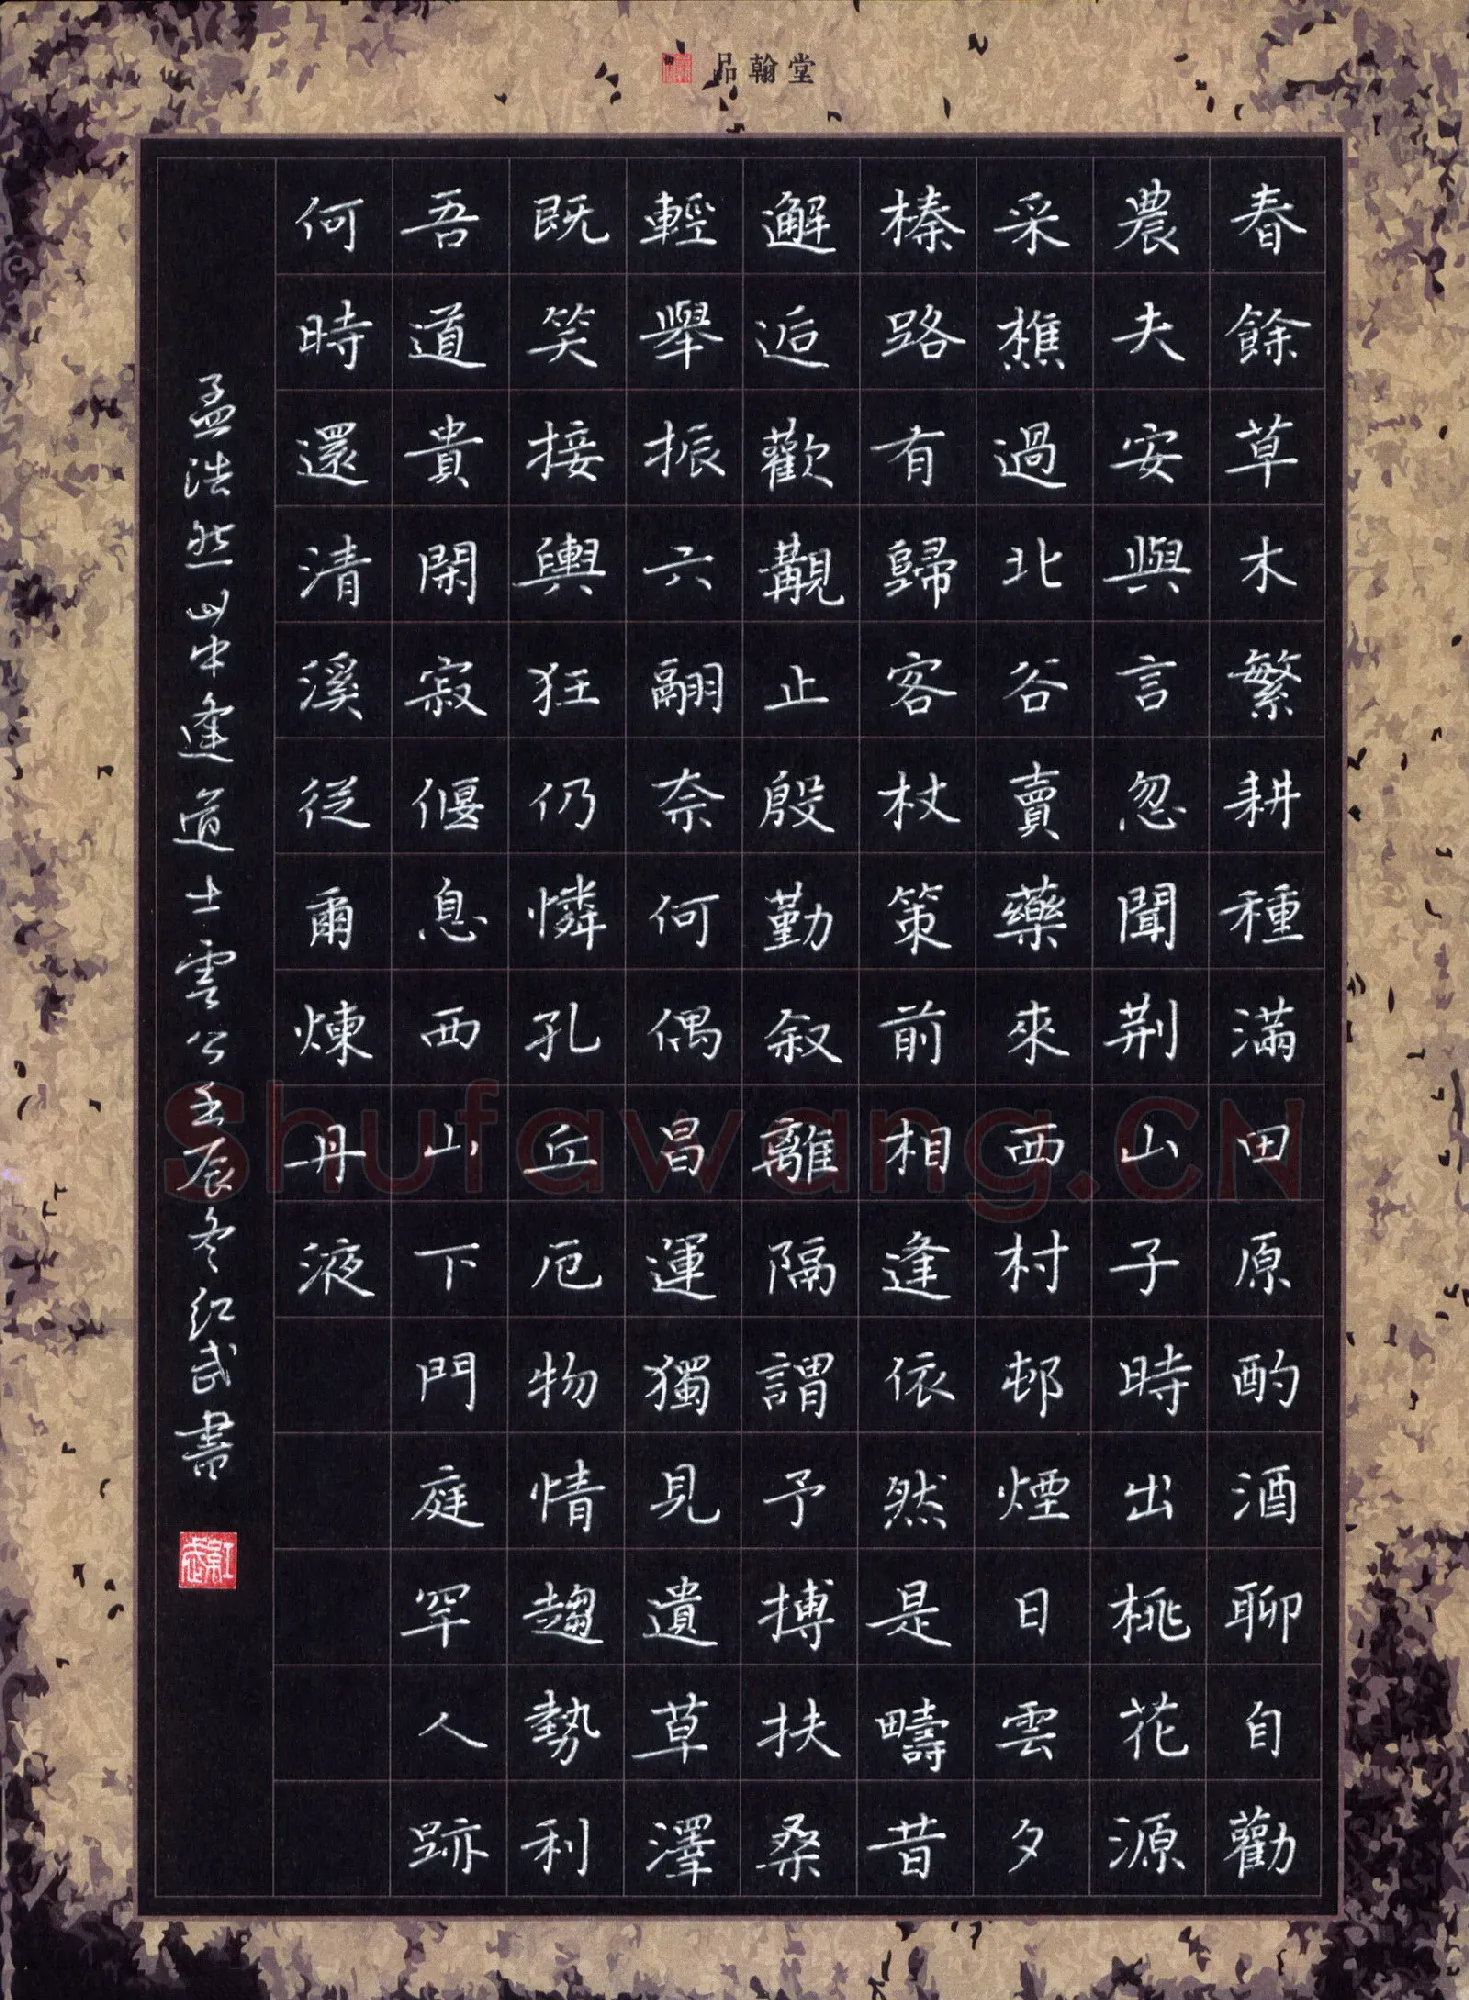 品翰堂
春餘草木繁耕種滿田原酌酒聊自勸
農夫安與言忽聞荆山子時出桃花源
采樵過北谷賣藥來西村邨煙日雲夕
榛路有歸客杖策前相逢依然是疇昔
邂逅歡覯止殷勤叙離隔謂予搏扶桑
輕舉振六翮奈何偶昌運獨見遺草澤
既笑接輿狂仍憐孔丘厄物情趨勢利
吾道貴閑寂偃息西山下門庭罕人跡
何時還清溪從爾煉丹液
孟浩然山中逢道士雲公壬辰冬紅武書
紅武
Shufawang.CN